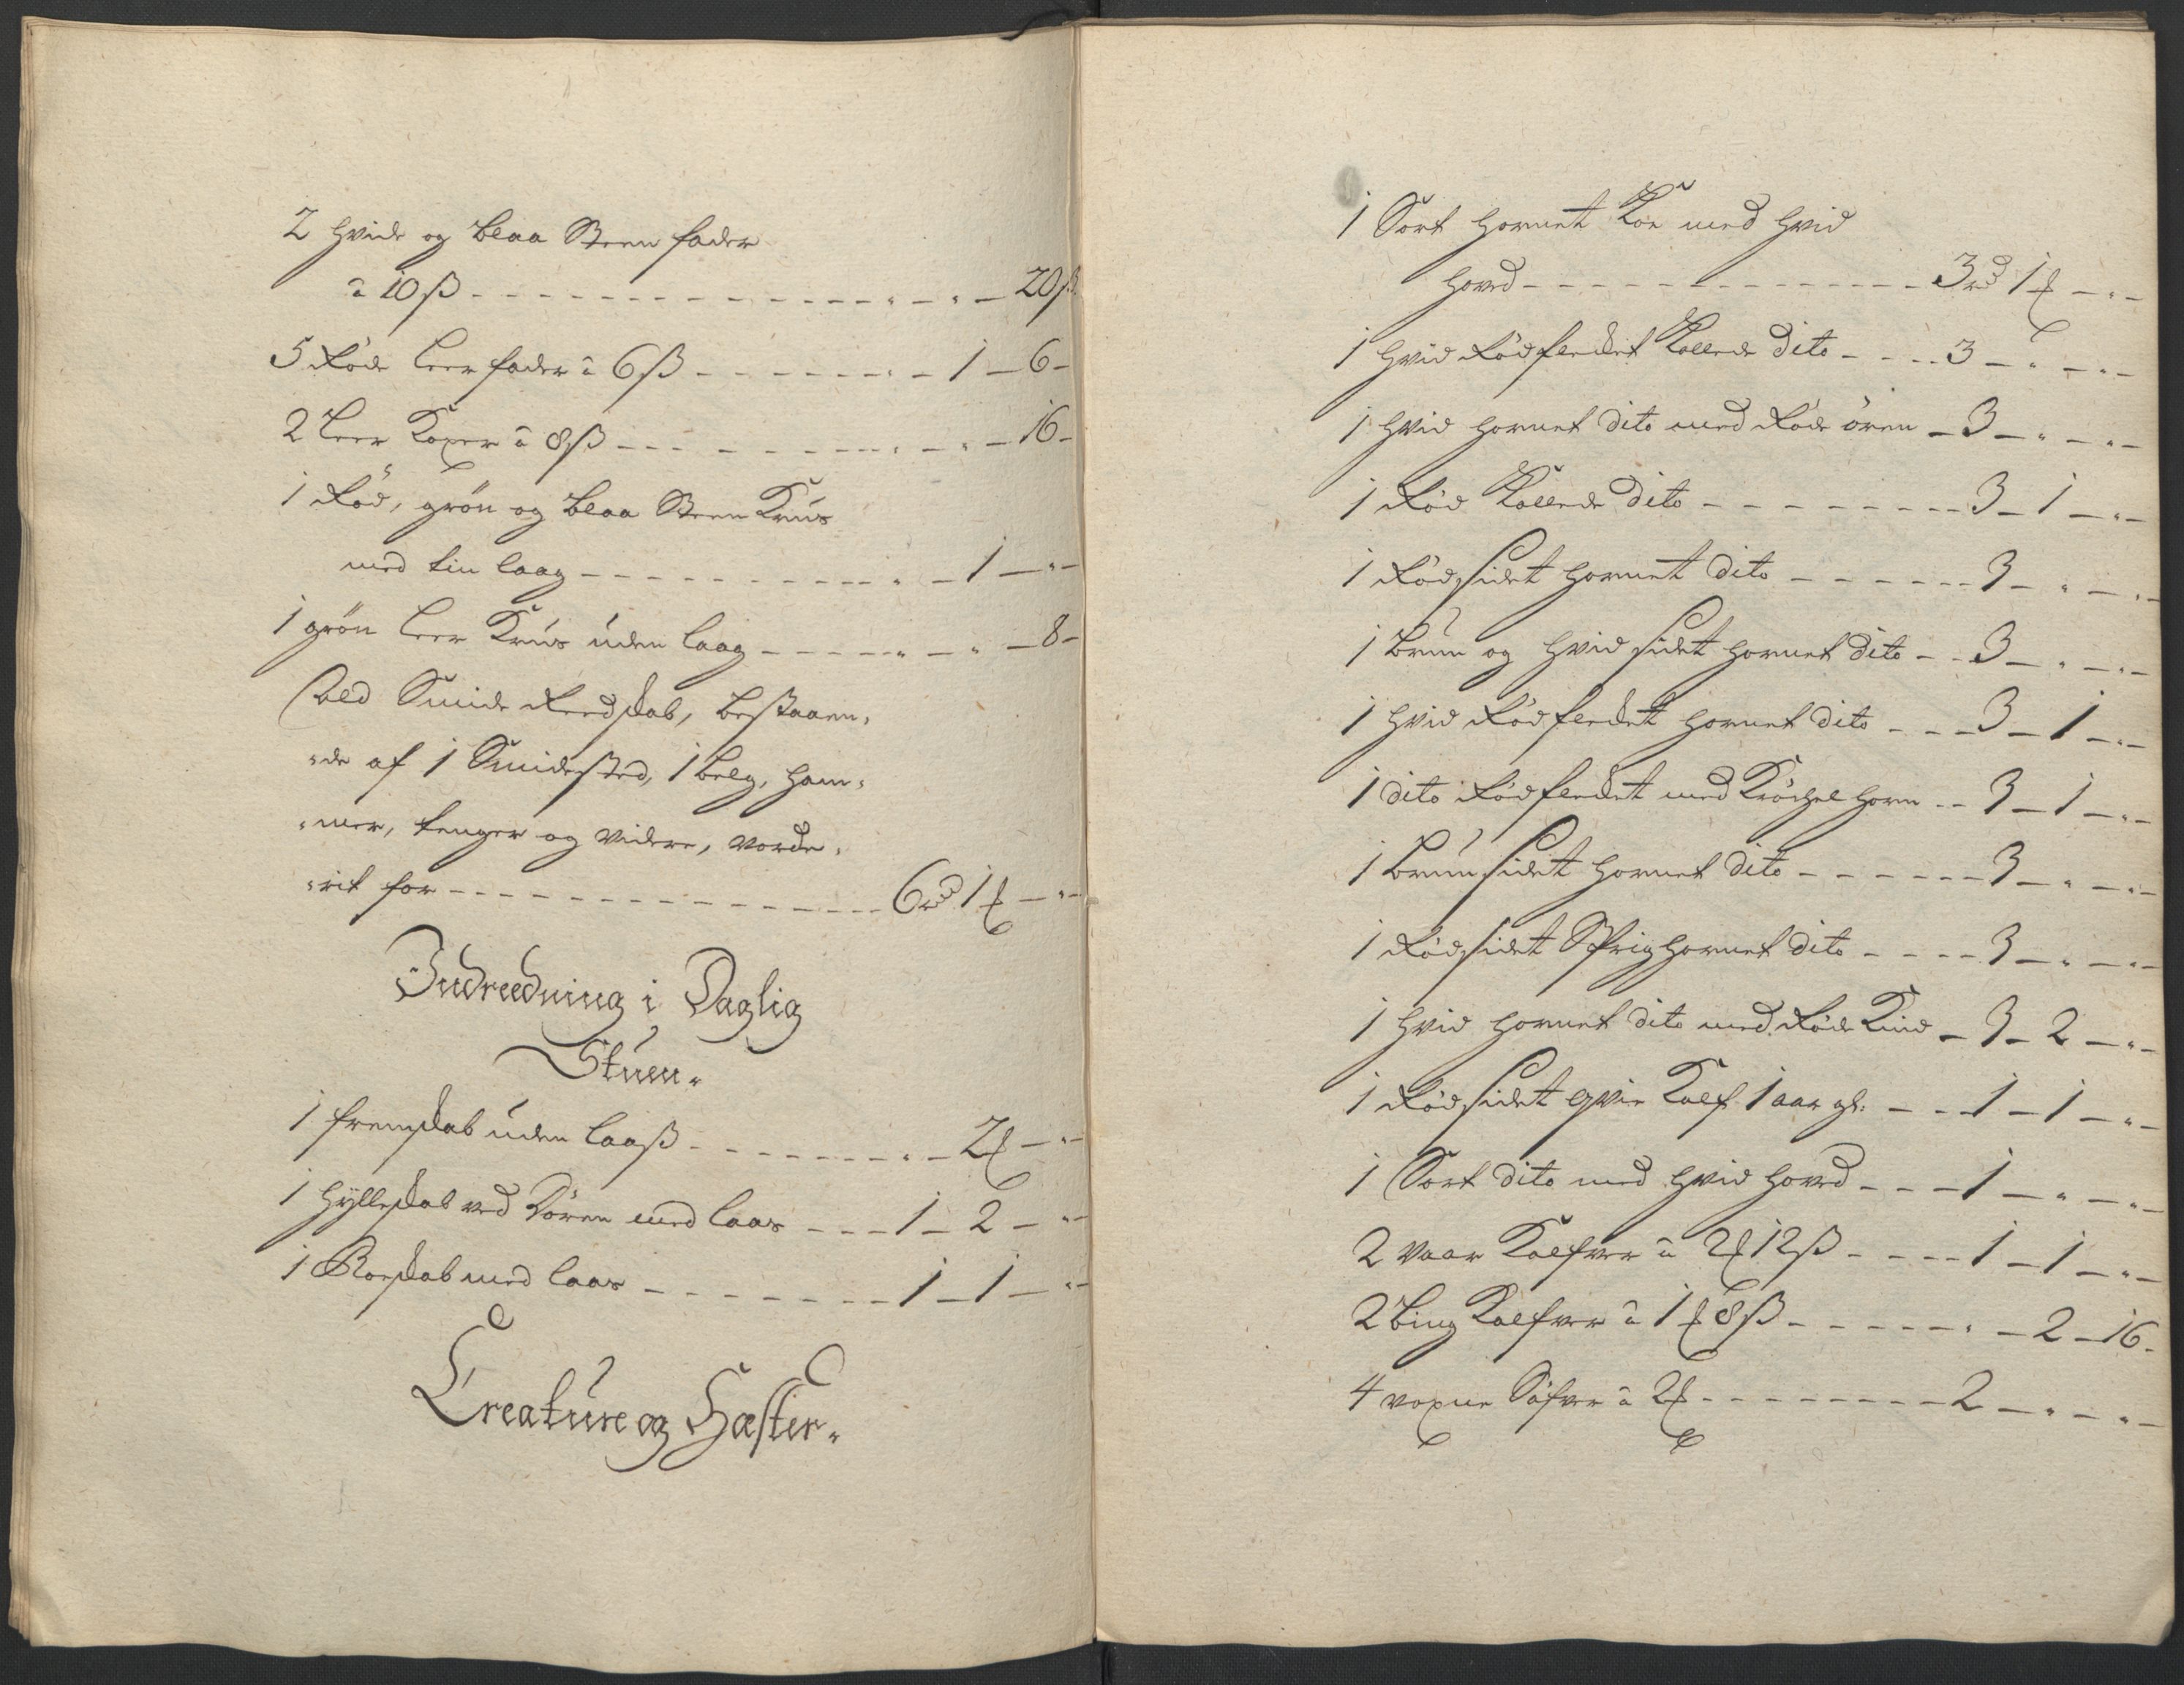 2 hvide og blaa Steen fader
â 10 ß - - - - - - - - - - - - - „ - „ - 20 ß
5 Røde Leer fader â 6 ß - - - - - - - „ - 1 - 6 -
2 Leer Koper â 8 ß - - - - - - - - - „ - „ - 16 -
1 Rød, grøn og blaa Steen Kruus
med tin laag - - - - - - - - - - - „ - 1 - „ -
1 grøn Leer Kruus uden laag - - - - - „ - „ - 8 -
Ald Smide Reedskab, bestaaen„
„de af 1 Smidested, 1 belg, ham„
„mer, tenger og videre, vorde„
„rit for - - - - - - - - - - - - - - - - 6 rd 1 ₰ - „ -
Indreedning i Daglig
Stuen„
1 fremskab uden laaß - - - - - - - - „ - 2 ₰ - „ -
1 Hylleskab ved Dören med laas - - - 1 - 2 - „ -
1 Roeskab med laas - - - - - - - - 1 - 1 - „ -
Creature og Hæster„
1 Sort hornet Koe med hvid
hoved - - - - - - - - - - - - - - - 3 rd 1 ₰ - „ -
1 hvid Rødflecket Kollede dito - - - - 3 - „ - „ -
1 hvid hornet dito med Røde ören - 3 - „ - „ -
1 Rød Kollede dito - - - - - - - - - 3 - 1 - „ -
1 Rødsidet hornet dito - - - - - - - 3 - „ - „ -
1 Bruun og hvid sidet hornet dito - - 3 - „ - „ -
1 hvid Rødflecket hornet dito - - - 3 - 1 - „ -
1 dito Rødflecket med Krøchel horn - - 3 - 1 - „ -
1 Bruunsidet hornet dito - - - - - - 3 - „ - „ -
1 Rødsidet Sprighornet dito - - - - 3 - „ - „ -
1 hvid hornet dito med Røde Kind - 3 - 2 - „ -
1 Rødsidet qvie Kalf 1 aar gl: - - - 1 - 1 - „ -
1 Sort dito med hvid hoved - - - 1 - „ - „ -
2 vaar Kalfver â 2 ₰ 12 ß - - - - 1 - 1 - „ -
2 Bing Kalfver â 1 ₰ 8 ß - - - - - „ - 2 - 16 -
4 voxne Söfver â 2 ₰ - - - - - - - - 2 - „ - „ -